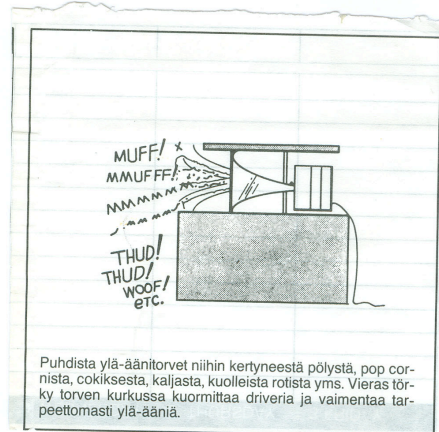 MUFF!
MMUFFF!
MMMMMMM
THUD!
THUD!
WOOF!
etc.
Puhdista ylä-äänitorvet niihin kertyneestä pölystä, pop cor-
nista, cokiksesta, kaljasta, kuolleista rotista yms. Vieras tör-
ky torven kurkussa kuormittaa driveria ja vaimentaa tar-
peettomasti ylä-ääniä.